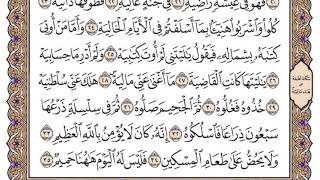 فَهُوَ فِى عِيشَةٍ رَّاضِيَةٍ ٢١ فِى جَنَّةٍ عَالِيَةٍ ٢٢ قُطُوفُهَا دَانِيَةٌ ٢٣
كُلُوا۟ وَٱشْرَبُوا۟ هَنِيٓـًٔۢا بِمَآ أَسْلَفْتُمْ فِى ٱلْأَيَّامِ ٱلْخَالِيَةِ ٢٤ وَأَمَّا مَنْ أُوتِىَ
كِتَٰبَهُۥ بِشِمَالِهِۦ فَيَقُولُ يَٰلَيْتَنِى لَمْ أُوتَ كِتَٰبِيَهْ ٢٥ وَلَمْ أَدْرِ مَا حِسَابِيَهْ
٢٦ يَٰلَيْتَهَا كَانَتِ ٱلْقَاضِيَةَ ٢٧ مَآ أَغْنَىٰ عَنِّى مَالِيَهْ ٢٨ هَلَكَ عَنِّى سُلْطَٰنِيَهْ
٢٩ خُذُوهُ فَغُلُّوهُ ٣٠ ثُمَّ ٱلْجَحِيمَ صَلُّوهُ ٣١ ثُمَّ فِى سِلْسِلَةٍ ذَرْعُهَا
سَبْعُونَ ذِرَاعًا فَٱسْلُكُوهُ ٣٢ إِنَّهُۥ كَانَ لَا يُؤْمِنُ بِٱللَّهِ ٱلْعَظِيمِ ٣٣
وَلَا يَحُضُّ عَلَىٰ طَعَامِ ٱلْمِسْكِينِ ٣٤ فَلَيْسَ لَهُ ٱلْيَوْمَ هَٰهُنَا حَمِيمٌ ٣٥